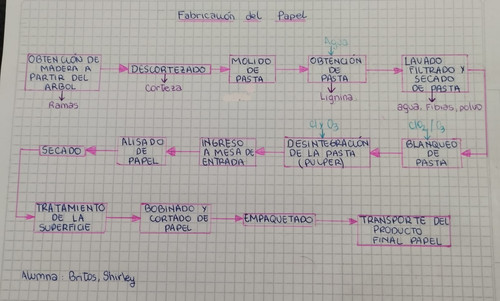 Fabricación del Papel
Agua
OBTENCIÓN DE
MADERA A
PARTIR DEL
ARBOL
DESCORTEZADO
MOLIDO
DE
PASTA
OBTENCIÓN
DE
PASTA
LAVADO
FILTRADO Y
SECADO
DE PASTA
Ramas
corteza
Lignina
agua, Fibras, polvo
Cl y O3
ClO2/O3
SECADO
ALISADO
DE
PAPEL
INGRESO
A MESA DE
ENTRADA
DESINTEGRACIÓN
DE LA PASTA
(PULPER)
BLANQUEO
DE
PASTA
TRATAMIENTO
DE LA
SUPERFICIE
BOBINADO Y
CORTADO DE
PAPEL
EMPAQUETADO
TRANSPORTE DEL
PRODUCTO
FINAL PAPEL
Alumna: Britos, Shirley